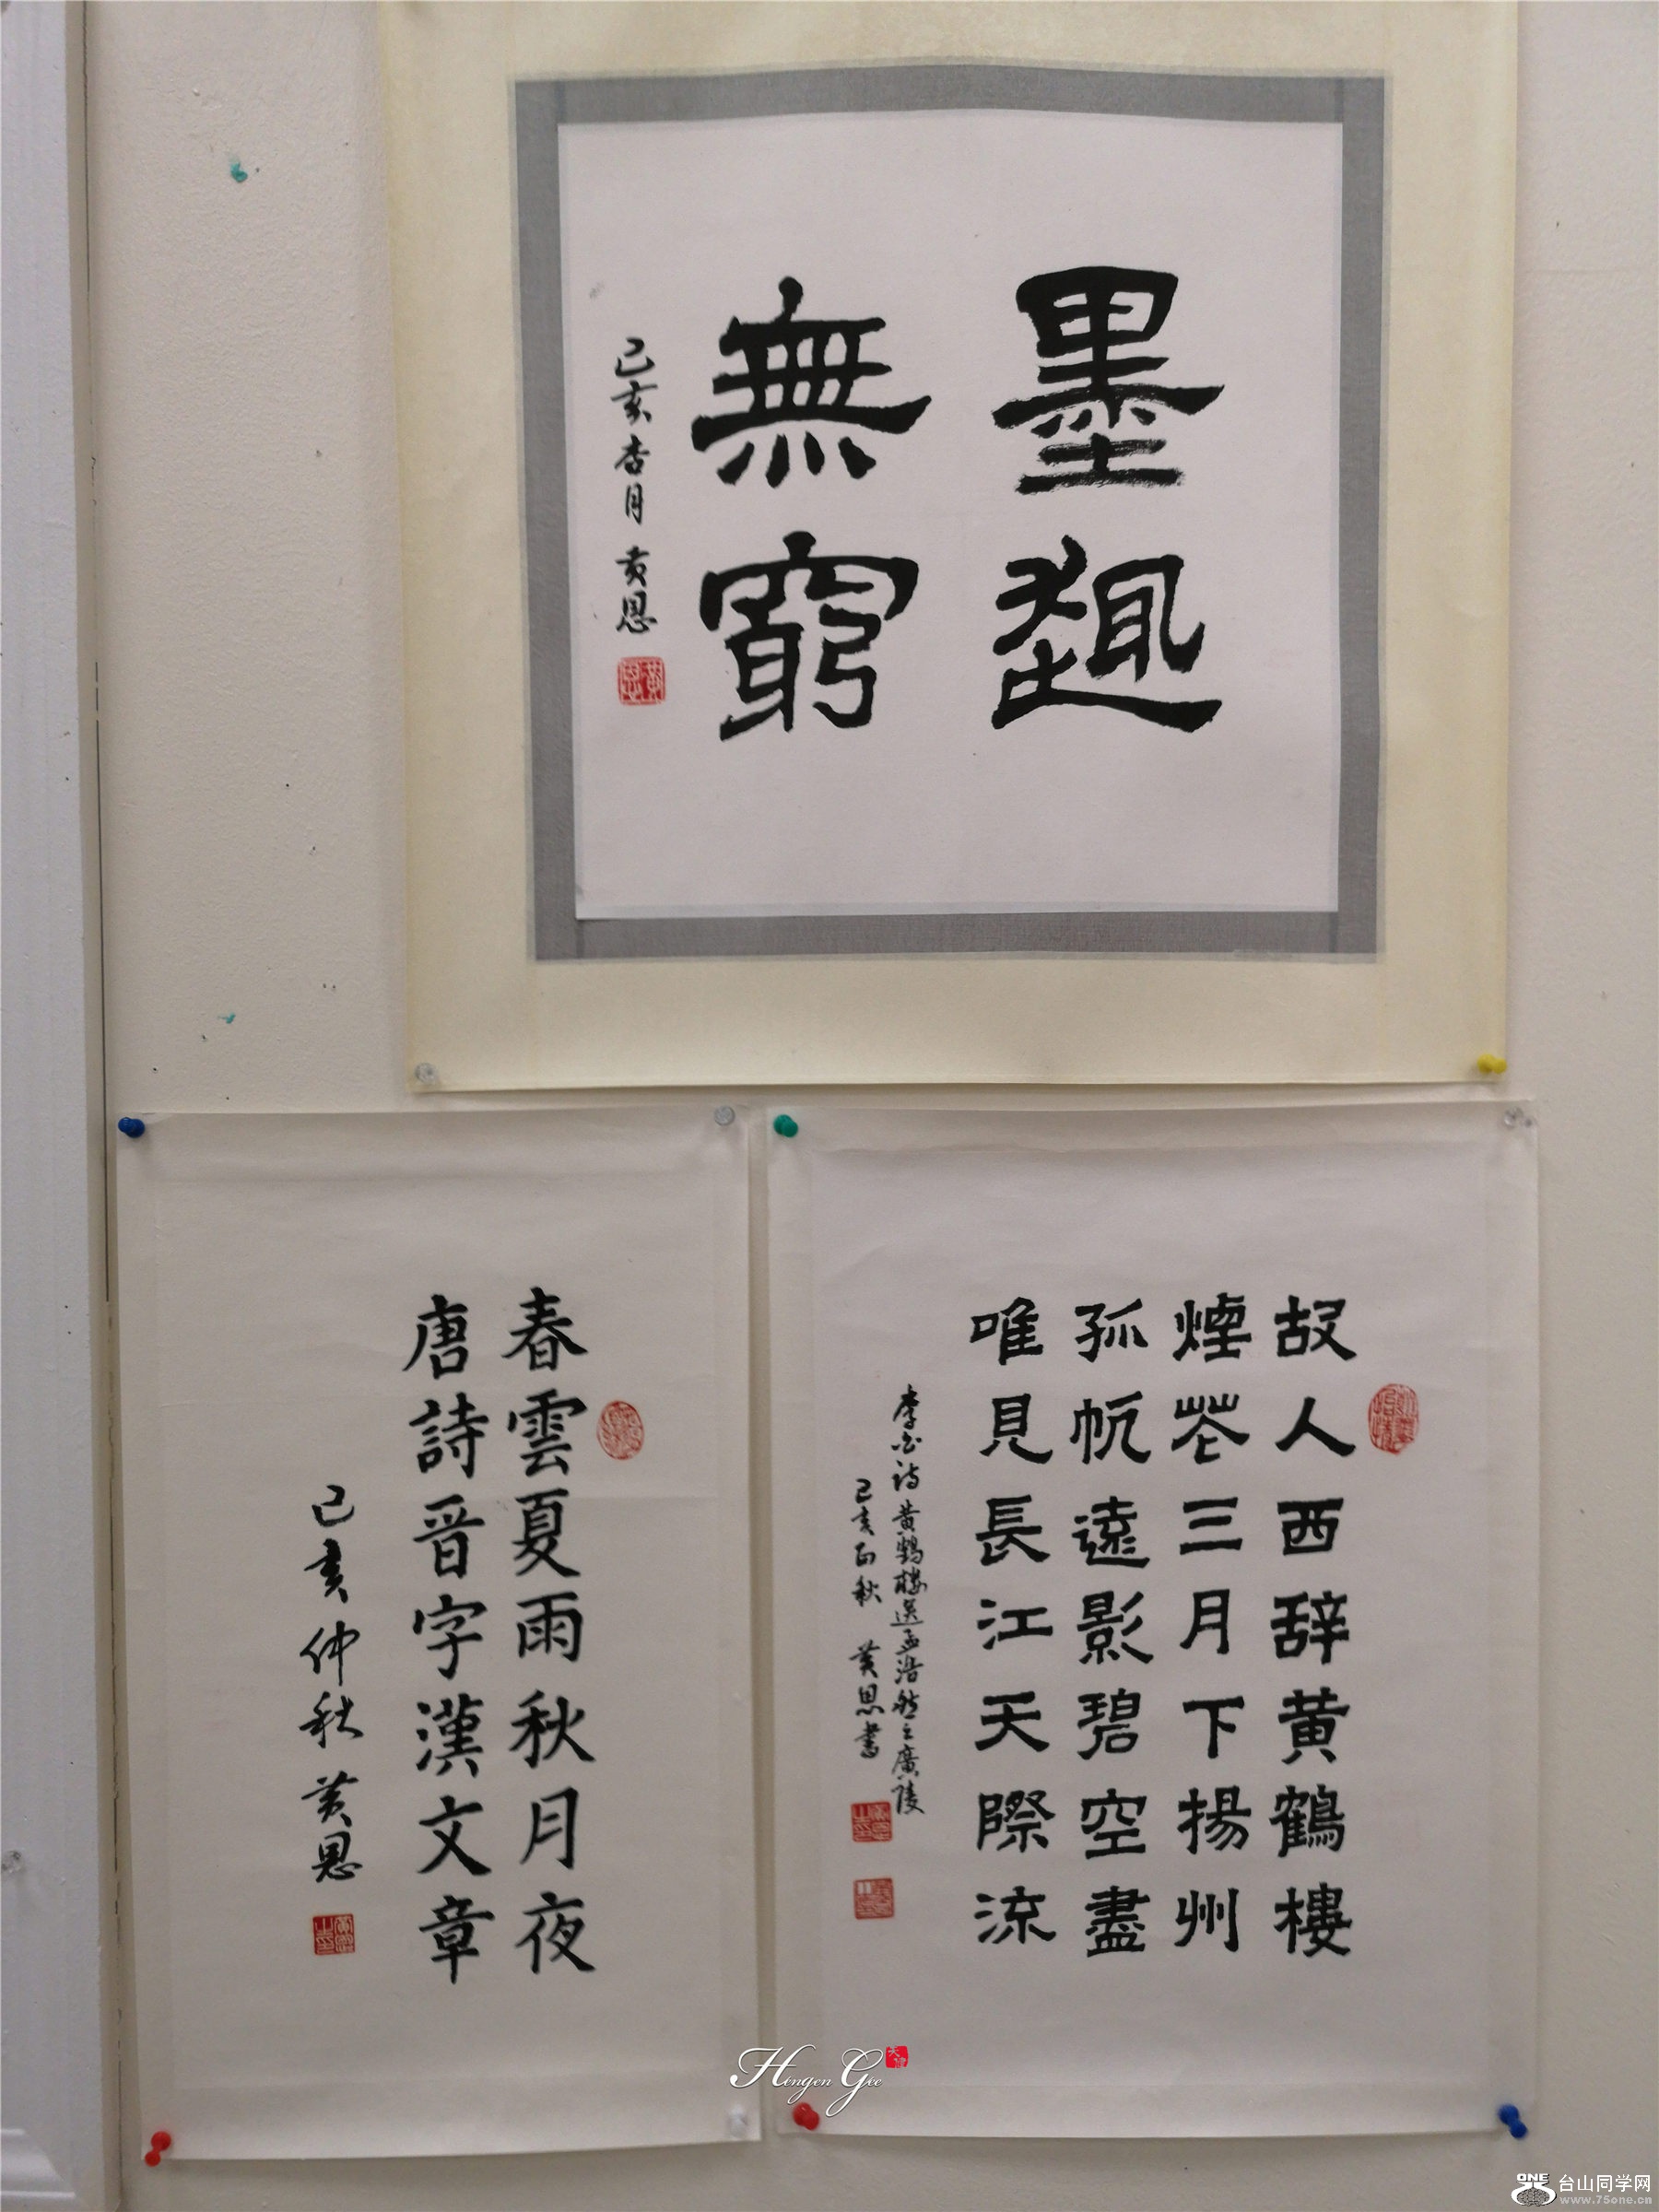 墨趣
無窮
己亥杏月 黄恩
春雲夏雨秋月夜
唐詩晋字漢文章
己亥仲秋 黄恩
故人西辞黄鶴樓
煙花三月下揚州
孤帆遠影碧空盡
唯見長江天際流
李白詩黄鶴樓送孟浩然之廣陵
己亥正秋 黄恩書
Hengen Gee
ONE 台山同学网
www.75one.cn